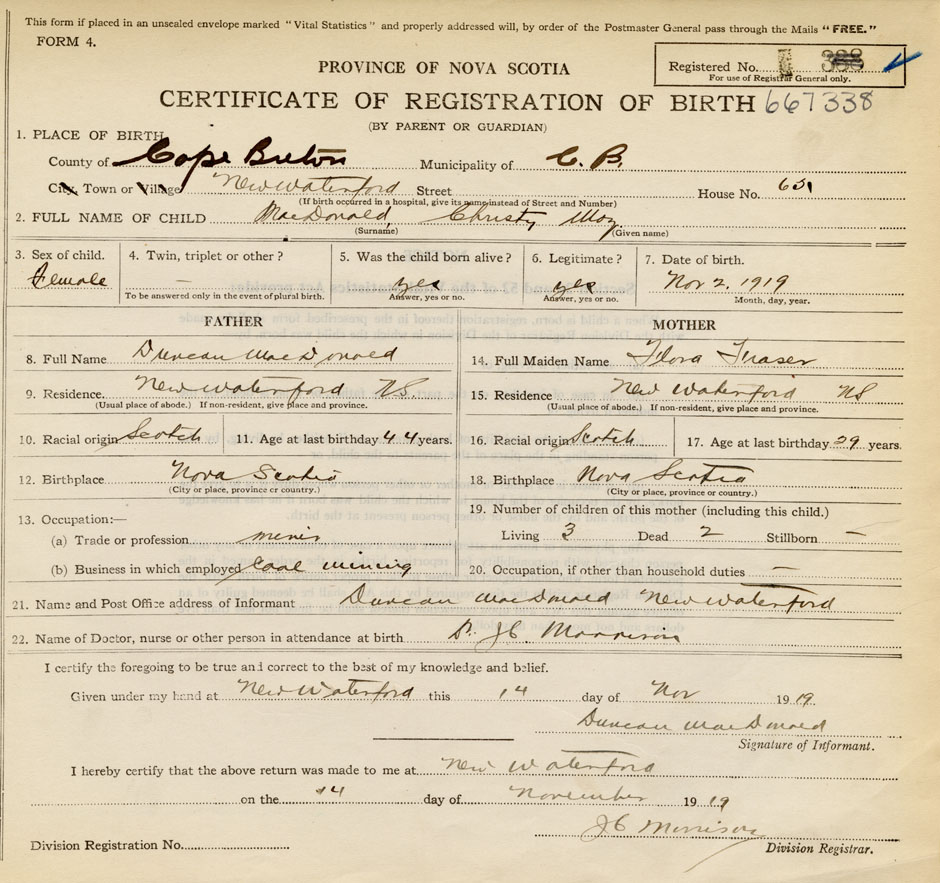 This form if placed in an unsealed envelope marked "Vital Statistics" and properly addressed will, by order of the Postmaster General pass through the Mails "FREE."
FORM 4.
Registered No. 388
For use of Registrar General only.
PROVINCE OF NOVA SCOTIA
CERTIFICATE OF REGISTRATION OF BIRTH 667338
(BY PARENT OR GUARDIAN)
1. PLACE OF BIRTH
County of Cape Breton Municipality of C. B.
City, Town or Village New Waterford Street House No. 651
(If birth occurred in a hospital, give its name instead of Street and Number)
2. FULL NAME OF CHILD MacDonald, Christy May
(Surname) (Given name)
3. Sex of child. 4. Twin, triplet or other? 5. Was the child born alive? 6. Legitimate? 7. Date of birth.
Female — yes yes Nov 2, 1919
To be answered only in the event of plural birth. Answer, yes or no. Answer, yes or no. Month, day, year.
FATHER MOTHER
8. Full Name Duncan MacDonald 14. Full Maiden Name Flora Fraser
9. Residence. New Waterford NS. 15. Residence New Waterford NS
(Usual place of abode.) If non-resident, give place and province. (Usual place of abode.) If non-resident, give place and province.
10. Racial origin Scotch 11. Age at last birthday 44 years. 16. Racial origin Scotch 17. Age at last birthday 29 years.
12. Birthplace Nova Scotia 18. Birthplace Nova Scotia
(City or place, province or country.) (City or place, province or country.)
13. Occupation:— 19. Number of children of this mother (including this child.)
(a) Trade or profession miner Living 3 Dead 2 Stillborn —
(b) Business in which employed Coal mining 20. Occupation, if other than household duties —
21. Name and Post Office address of Informant Duncan MacDonald New Waterford
22. Name of Doctor, nurse or other person in attendance at birth Dr. JC Morrison
I certify the foregoing to be true and correct to the best of my knowledge and belief.
Given under my hand at New Waterford this 14 day of Nov 1919
Duncan MacDonald
Signature of Informant.
I hereby certify that the above return was made to me at New Waterford
on the 14 day of November 1919
JC Morrison
Division Registration No. Division Registrar.